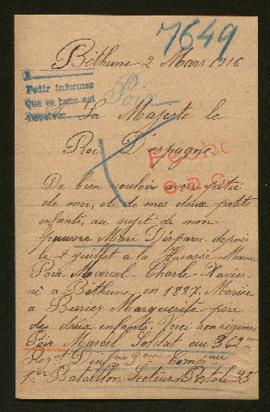 7649
Béthune 2 Mars 1916
Pedir informes
que se pase aqui
devolver
Poix
Sa Majesté le
Roi D'espagne
De bien vouloir avoir pitié
de moi, et de mes deux petits
enfants, au sujet de mon
pauvre Mari Disparu depuis
le 2 juillet a la
Poix Marcel Charle Xavier
né a Béthune en 1887 Marié
a Buriez Marguerite pere
de deux enfants, Voici son regiment
Poix Marcel Soldat au 362 eme
Reg t D'infrie 2 eme Compagnie
Bataillon Secteur Postale 35